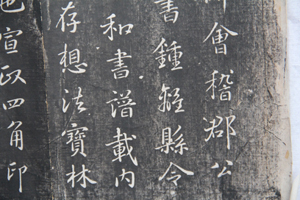 會稽郡公
書鍾繇縣令
和書譜載內
存想法寶林
宣政四角印